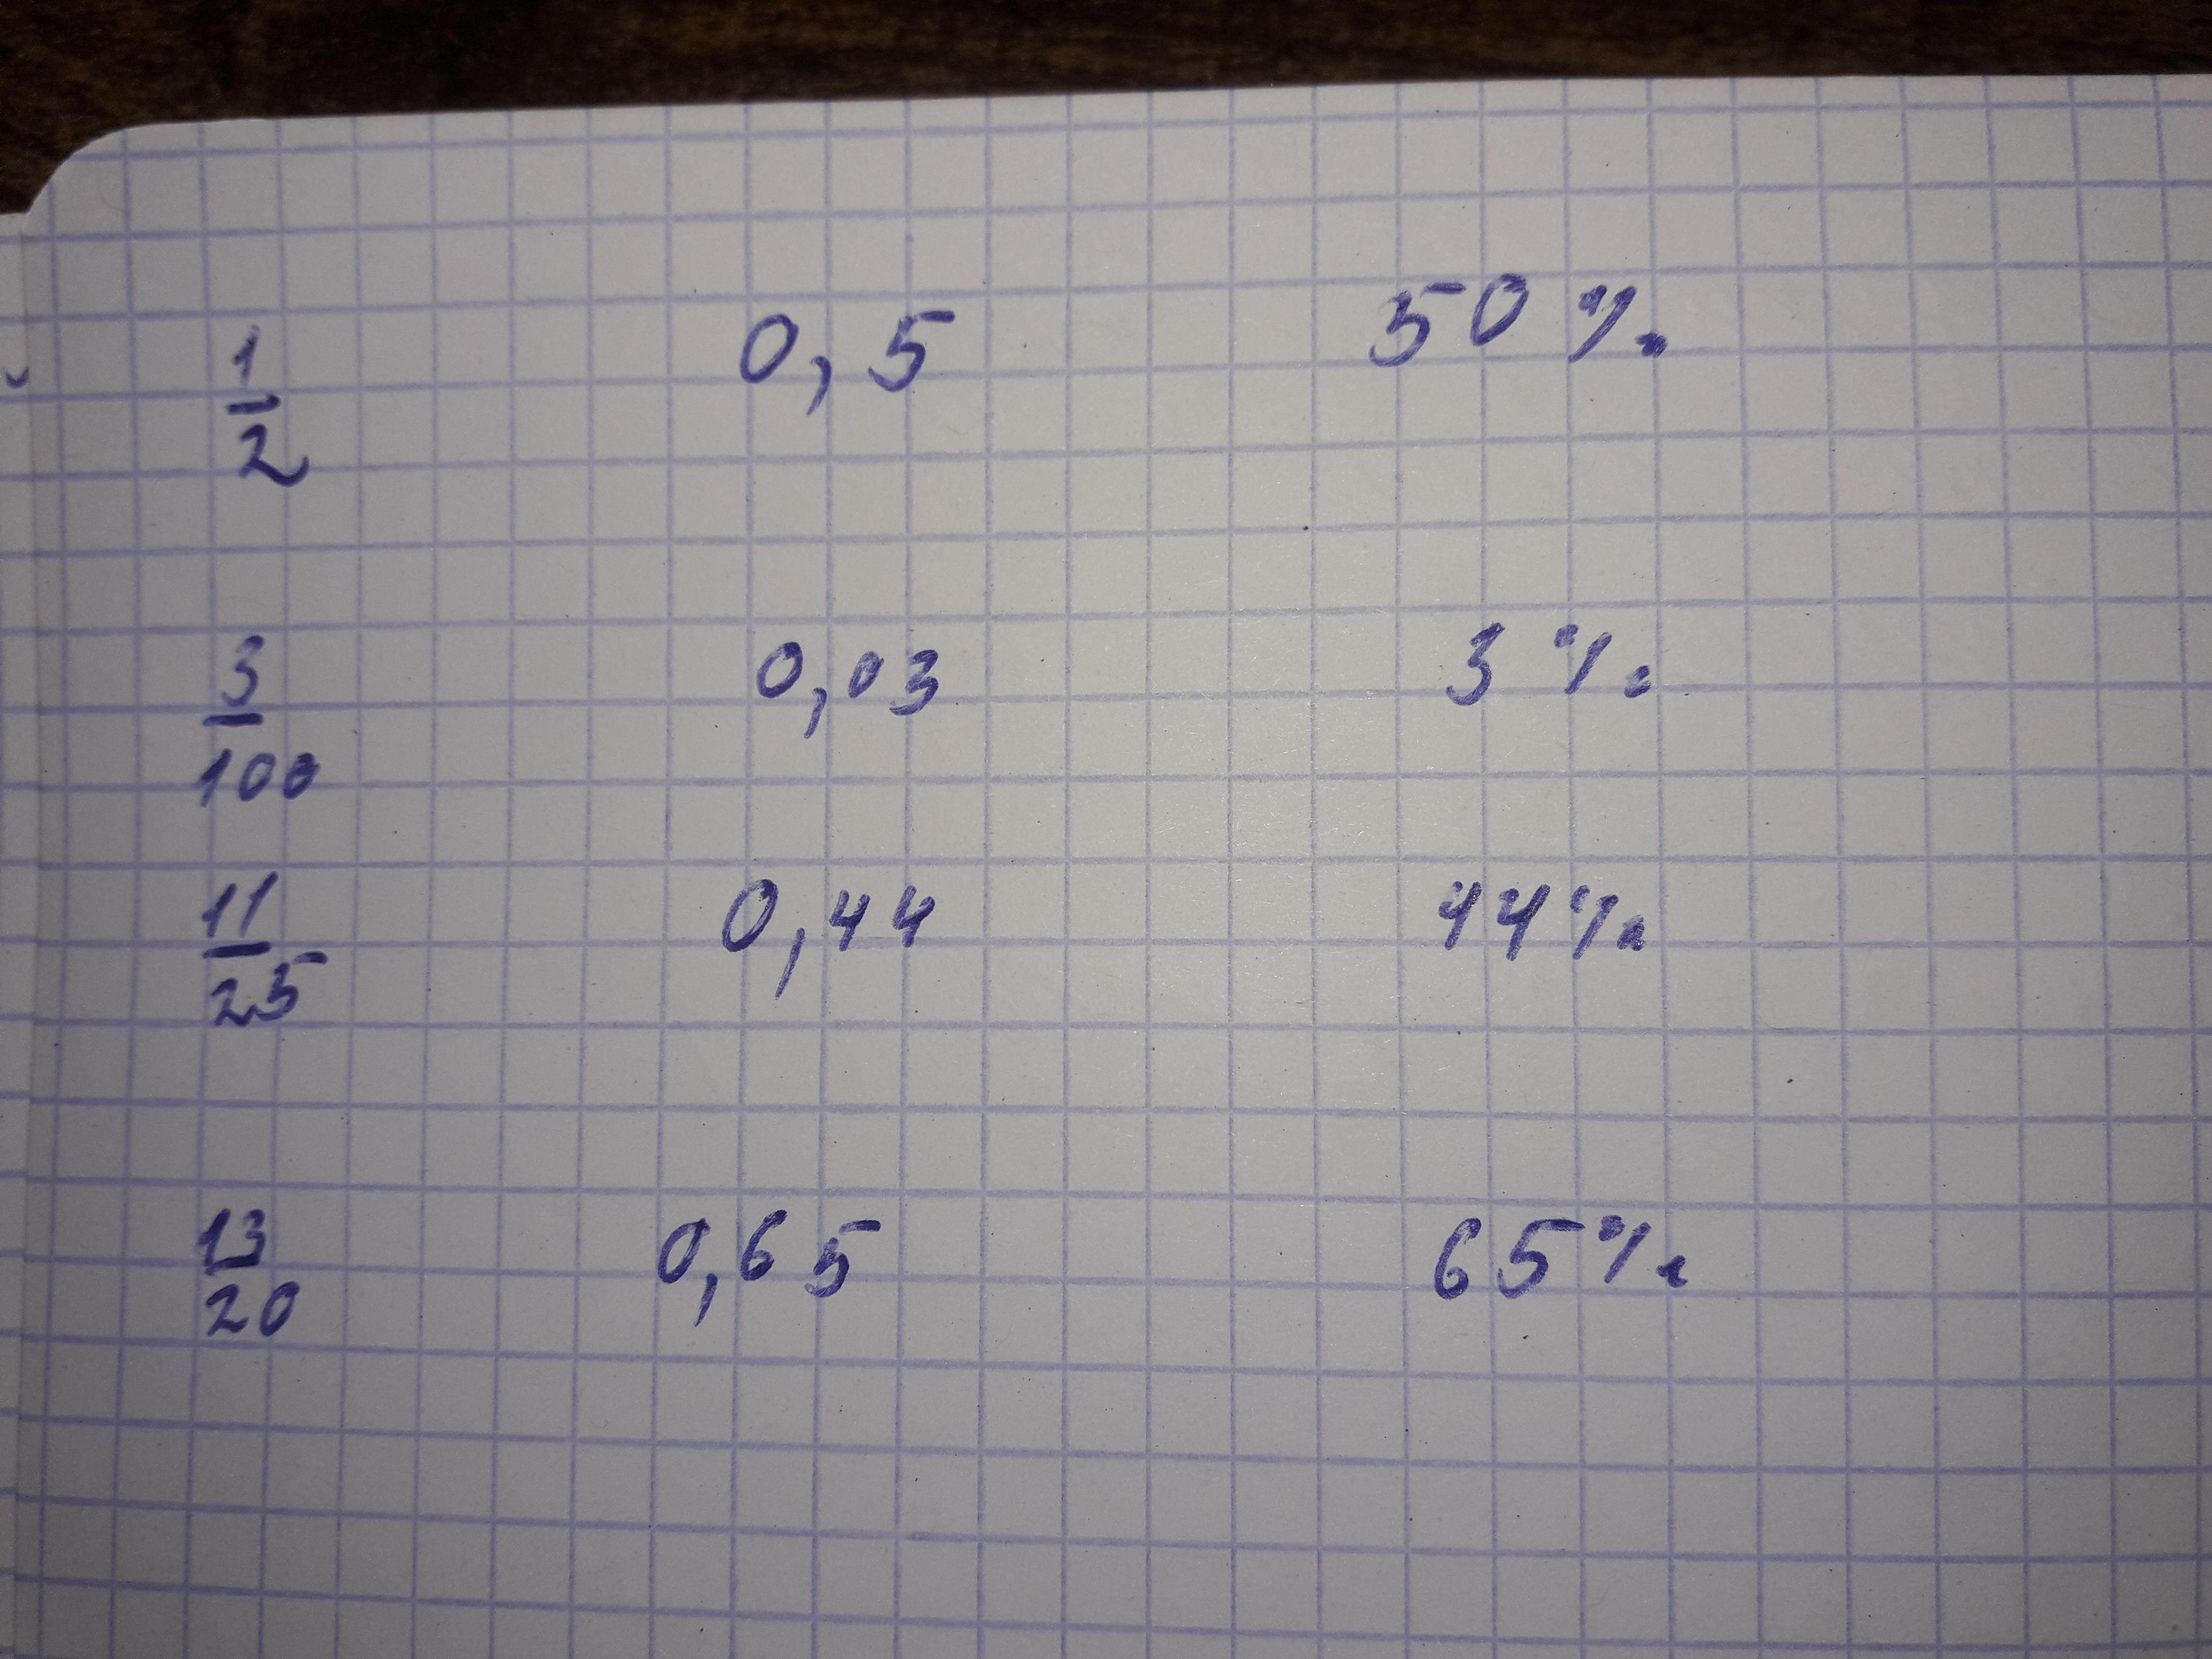 1/2 0,5 50%
3/100 0,03 3%
11/25 0,44 44%
13/20 0,65 65%